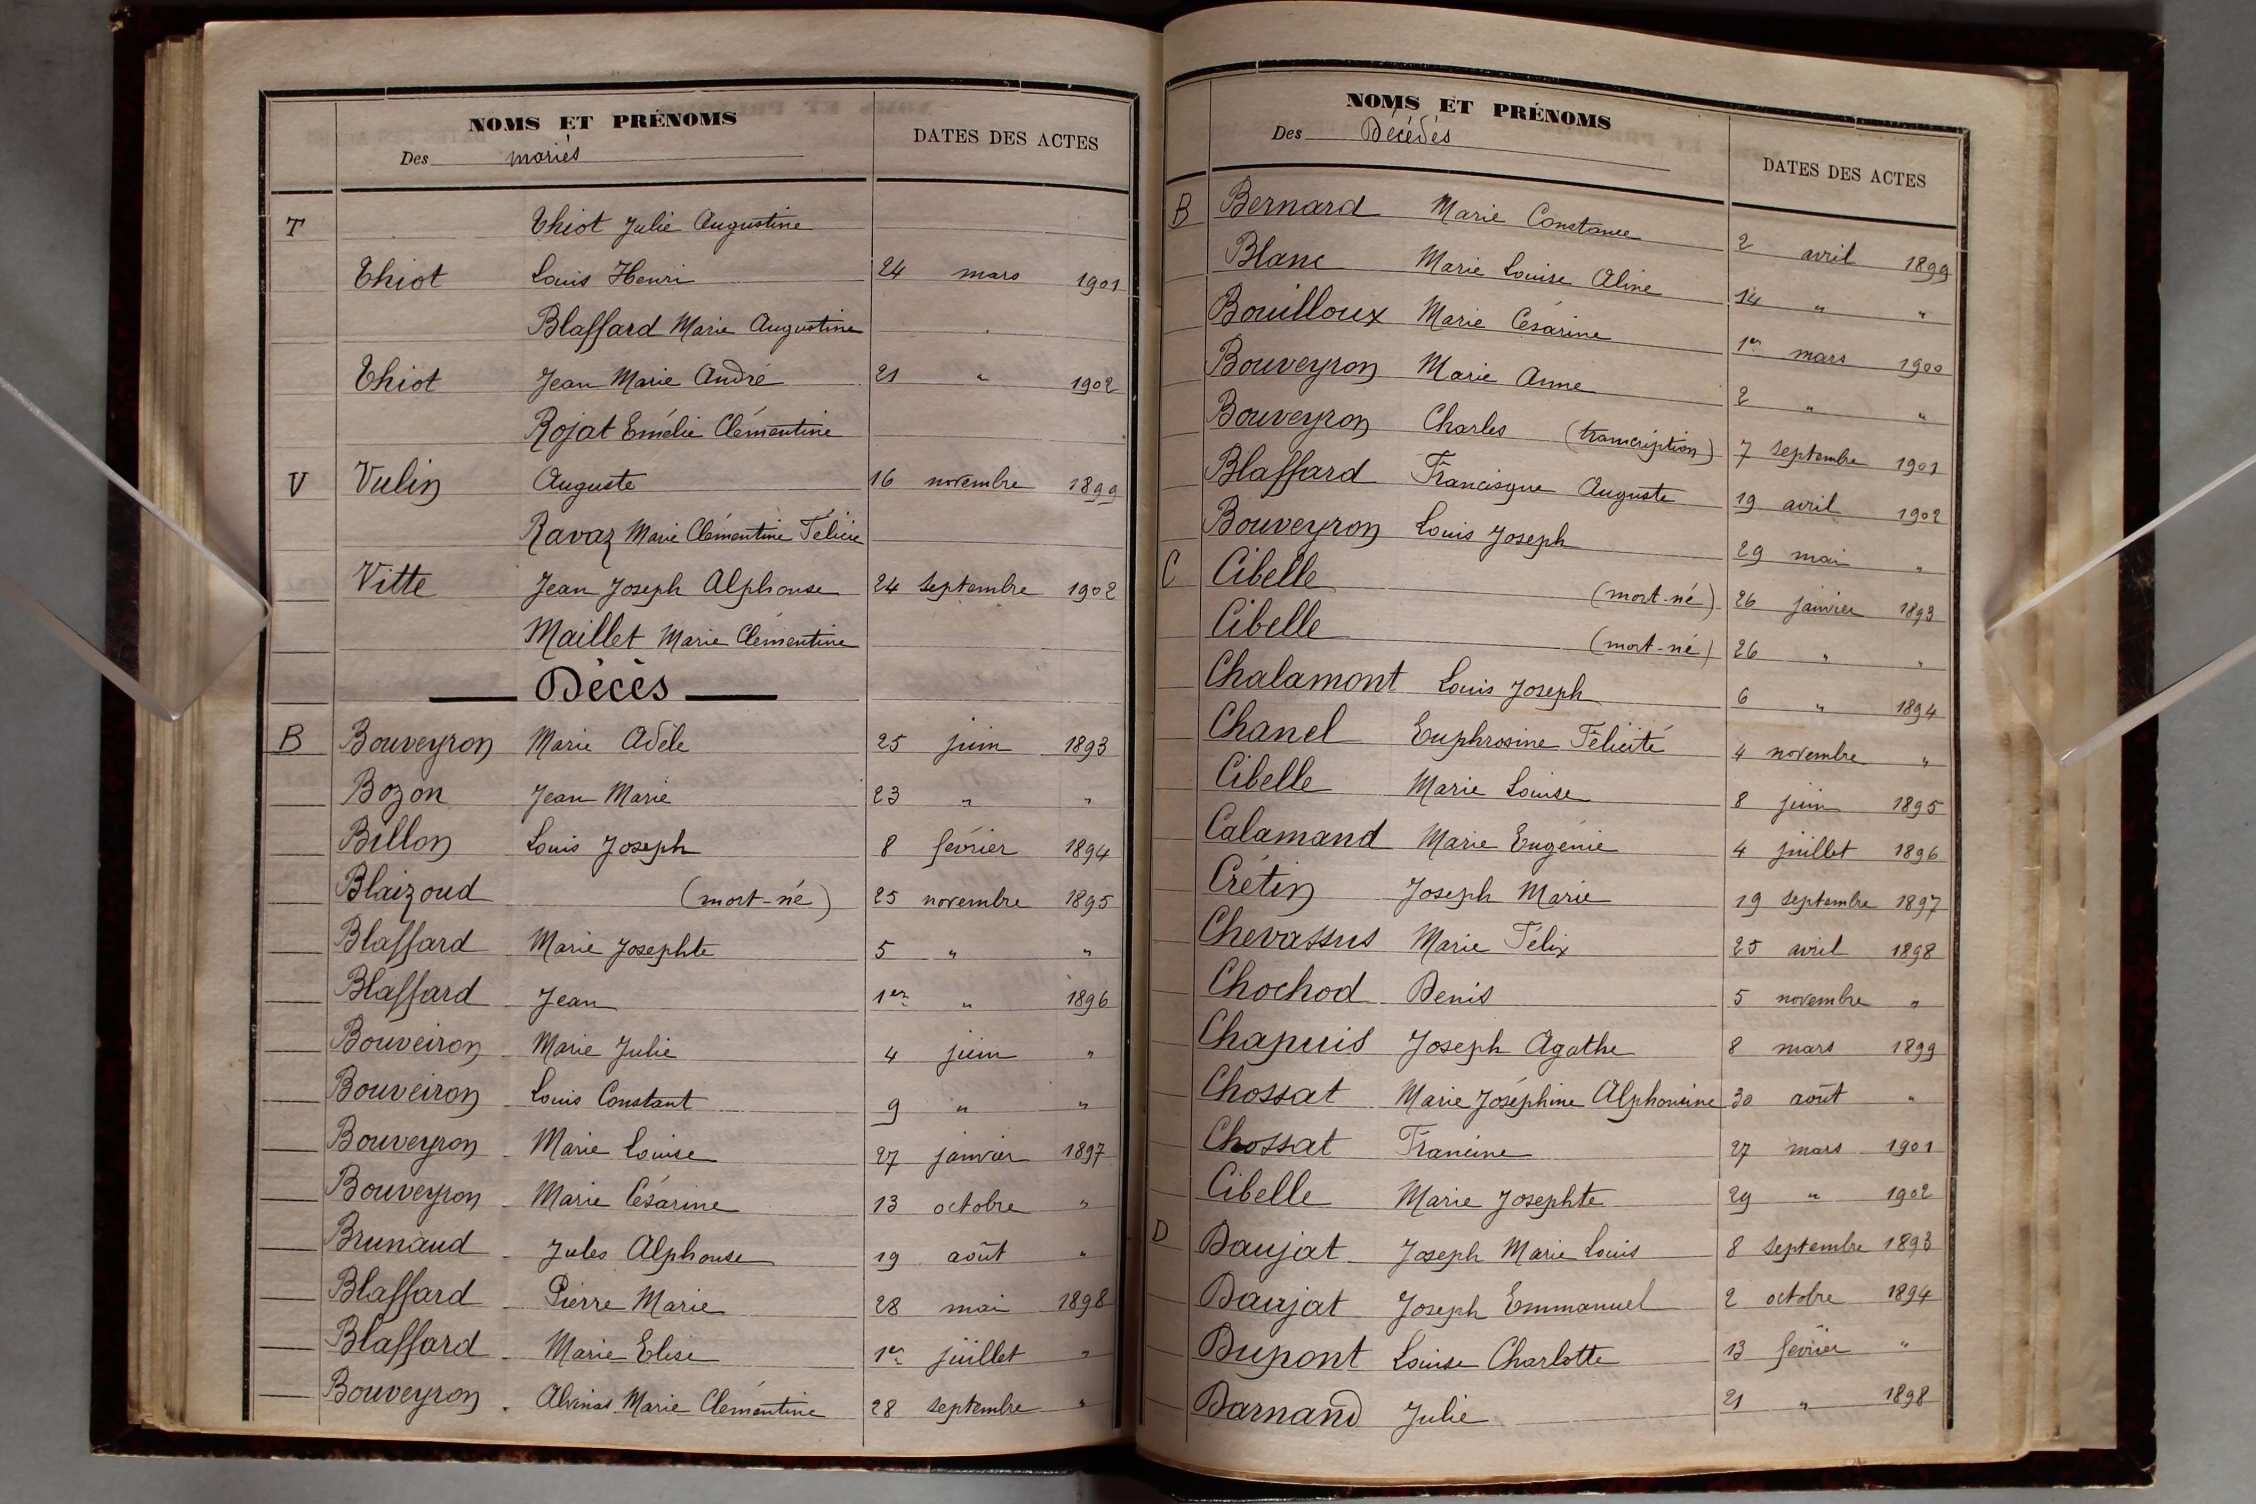 NOMS ET PRÉNOMS
Des mariés
DATES DES ACTES
T Thiot Julie Augustine
Thiot Louis Henri 24 mars 1901
Blaffard Marie Augustine
Thiot Jean Marie André 21 " 1902
Rojat Emélie Clémentine
V Vulin Auguste 16 novembre 1899
Ravaz Marie Clémentine Félicie
Vitte Jean Joseph Alphonse 24 septembre 1902
Maillet Marie Clémentine
Décès
B Bouveyron Marie Adèle 25 juin 1893
Bozon Jean Marie 23 " "
Billon Louis Joseph 8 février 1894
Blaizoud (mort-né) 25 novembre 1895
Blaffard Marie Josephte 5 " "
Blaffard Jean 1er " 1896
Bouveiron Marie Julie 4 juin "
Bouveiron Louis Constant 9 " "
Bouveyron Marie Louise 27 janvier 1897
Bouveyron Marie Césarine 13 octobre "
Brunaud Jules Alphonse 19 août "
Blaffard Pierre Marie 28 mai 1898
Blaffard Marie Elise 1er juillet "
Bouveyron Marie Clémentine 28 septembre "
NOMS ET PRÉNOMS
Des Décédés
DATES DES ACTES
B Bernard Marie Constance 2 avril 1899
Blanc Marie Louise Aline 14 " "
Bouilloux Marie Césarine 1er mars 1900
Bouveyron Marie Anne 2 " "
Bouveyron Charles (transcription) 7 septembre 1901
Blaffard Francisque Auguste 19 avril 1902
Bouveyron Louis Joseph 29 mai "
C Cibelle (mort-né) 26 janvier 1893
Cibelle (mort-né) 26 " "
Chalamont Louis Joseph 6 " 1894
Chanel Euphrosine Félicité 4 novembre "
Cibelle Marie Louise 8 juin 1895
Calamand Marie Eugénie 4 juillet 1896
Crétin Joseph Marie 19 septembre 1897
Chevassus Marie Félix 25 avril 1898
Chochod Denis 5 novembre "
Chapuis Joseph Agathe 8 mars 1899
Chossat Marie Joséphine Alphonsine 30 août "
Chossat Francine 27 mars 1901
Cibelle Marie Josephte 29 " 1902
D Daujat Joseph Marie Louis 8 septembre 1893
Daujat Joseph Emmanuel 2 octobre 1894
Dupont Louise Charlotte 13 février "
Darnand Julie 21 " 1898